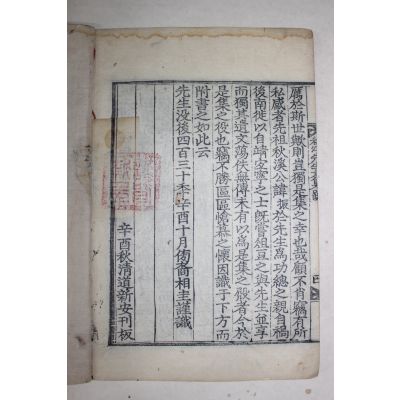 厲於斯世歟則豈獨是集之幸也哉顧不肖竊有所
私感者先祖秋溪公諱振於先生爲功緦之親自稱
後南徙以自靖客寧之士旣嘗俎豆之與先生並享
而獨其遺文蕩佚無傳未有以爲是集之殷者今於
是集之役也竊不勝區區愴慕之懷因識于下方而
附書之如此云
先生没後四百三十季辛酉十月傍裔相圭謹識
辛酉秋清道新安刊板